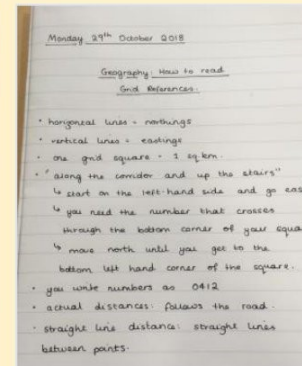 Monday 29th October 2018
Geography: How to read
Grid References.
• horizontal lines = northings
• vertical lines = eastings
• one grid square = 1 sq km.
• "along the corridor and up the stairs"
↳ start on the left-hand side and go eas
↳ you need the number that crosses
through the bottom corner of your squa
↳ move north until you get to the
bottom left hand corner of the square.
• you write numbers as 0412
• actual distances: follows the road.
• straight line distance: straight lines
between points.